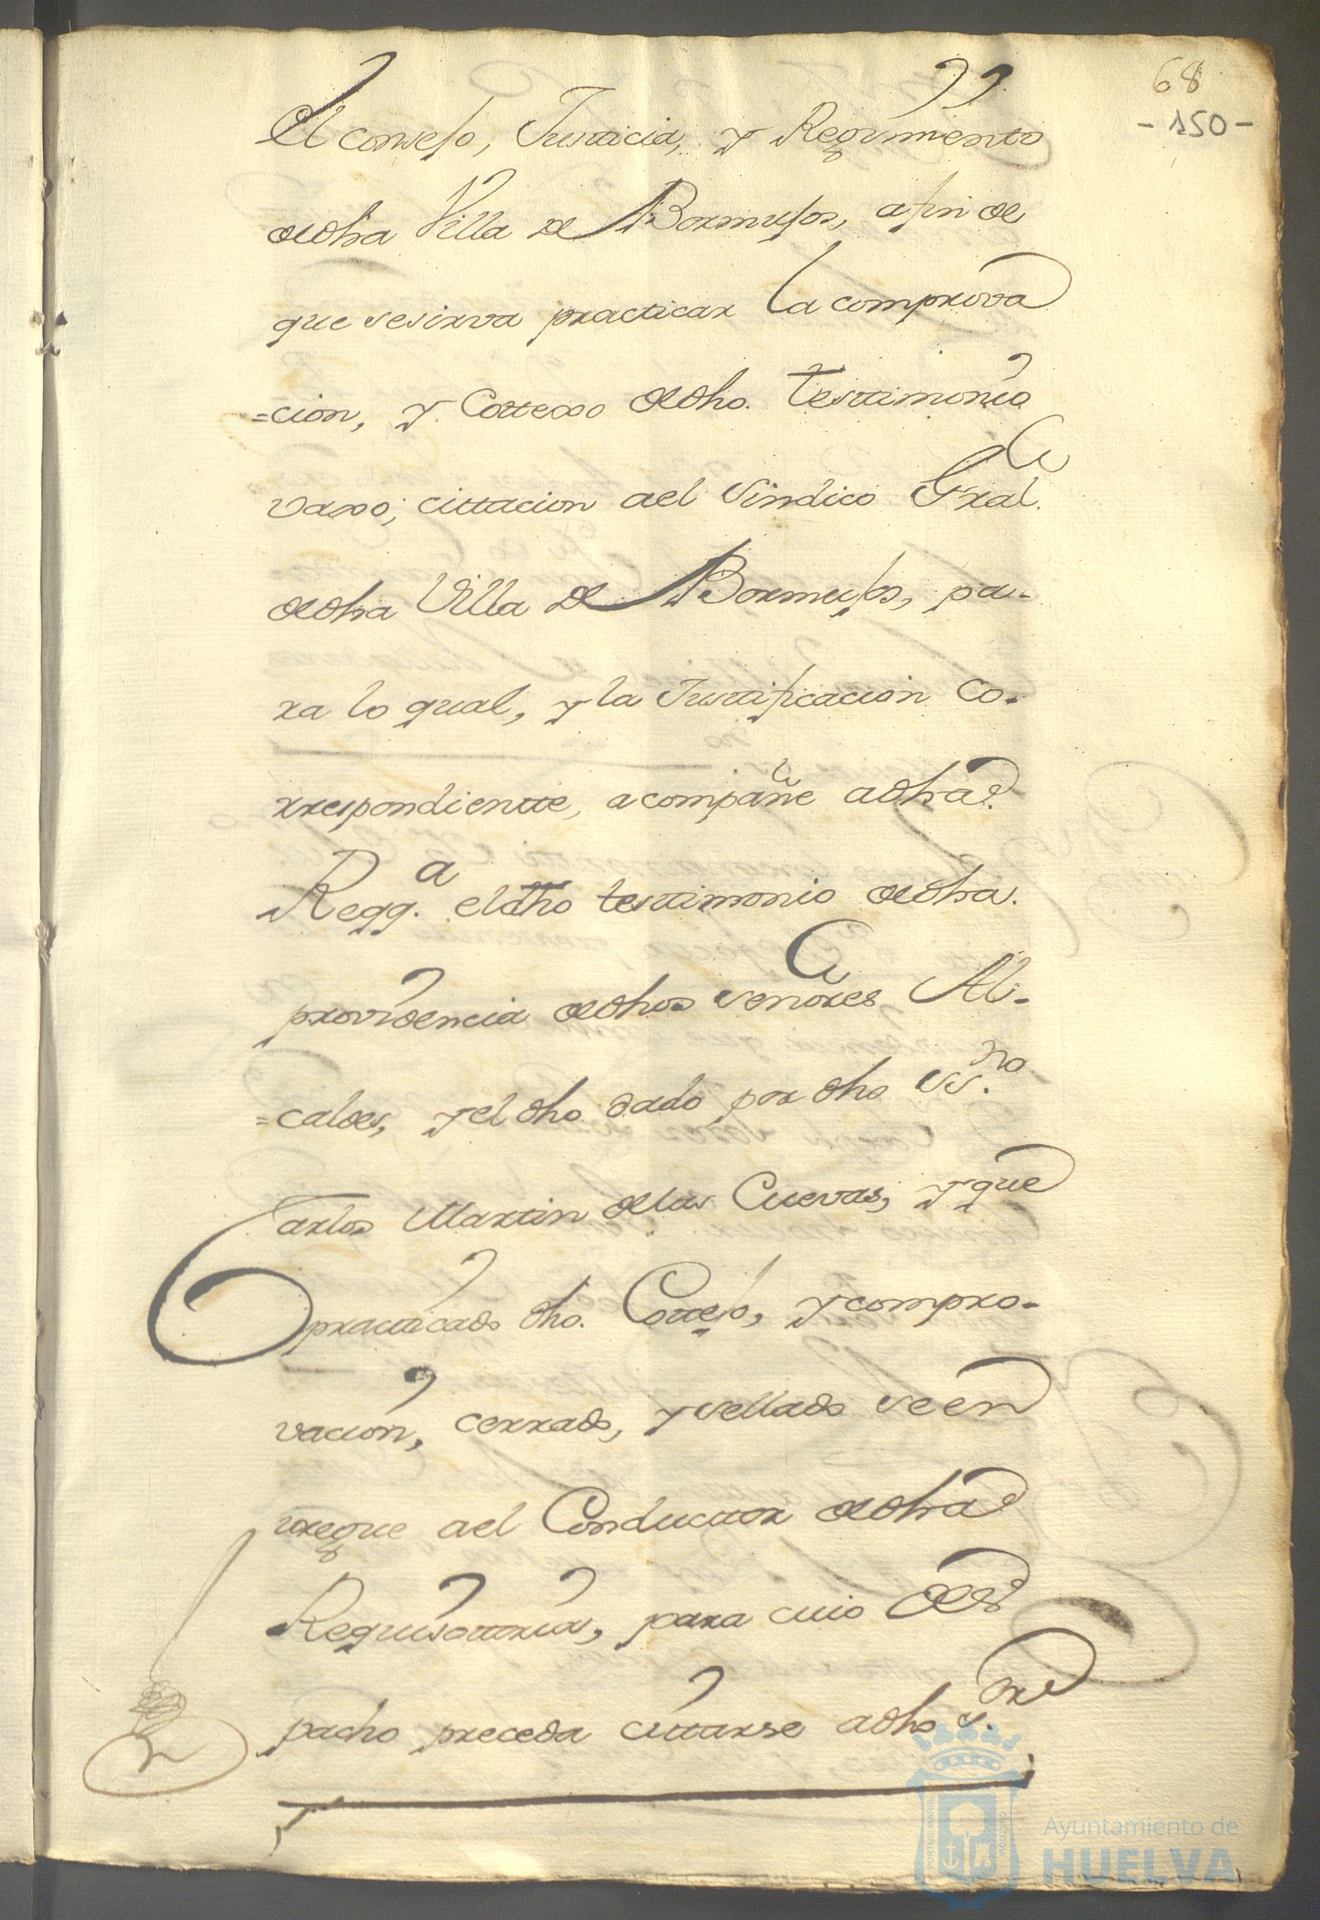 68
-150-
El consejo, Justicia, y Regimiento
dedha Villa de Bormujos, afin de
que sesirva practicar la comprova
=cion, y Cottexo dedho. testimonio
vaxo, cittacion ael Sindico Gral.
dedha Villa de Bormujos, pa-
ra lo qual, y la Justificacion co-
rrespondientte, acompañe adha
Reqq.a eldho testimonio dedha.
providencia dedhos señores Al-
=caldes, y el dho dado por dho ss.no
Carlos Martin delas Cuevas, y que
practicado dho. Cottejo, y compro-
vacion, cerrado, y sellado se en
tregue ael Conducttor dedha
Requisittoria, para cuio des
pacho preceda cittarse adho s.or
Ayuntamiento de
HUELVA